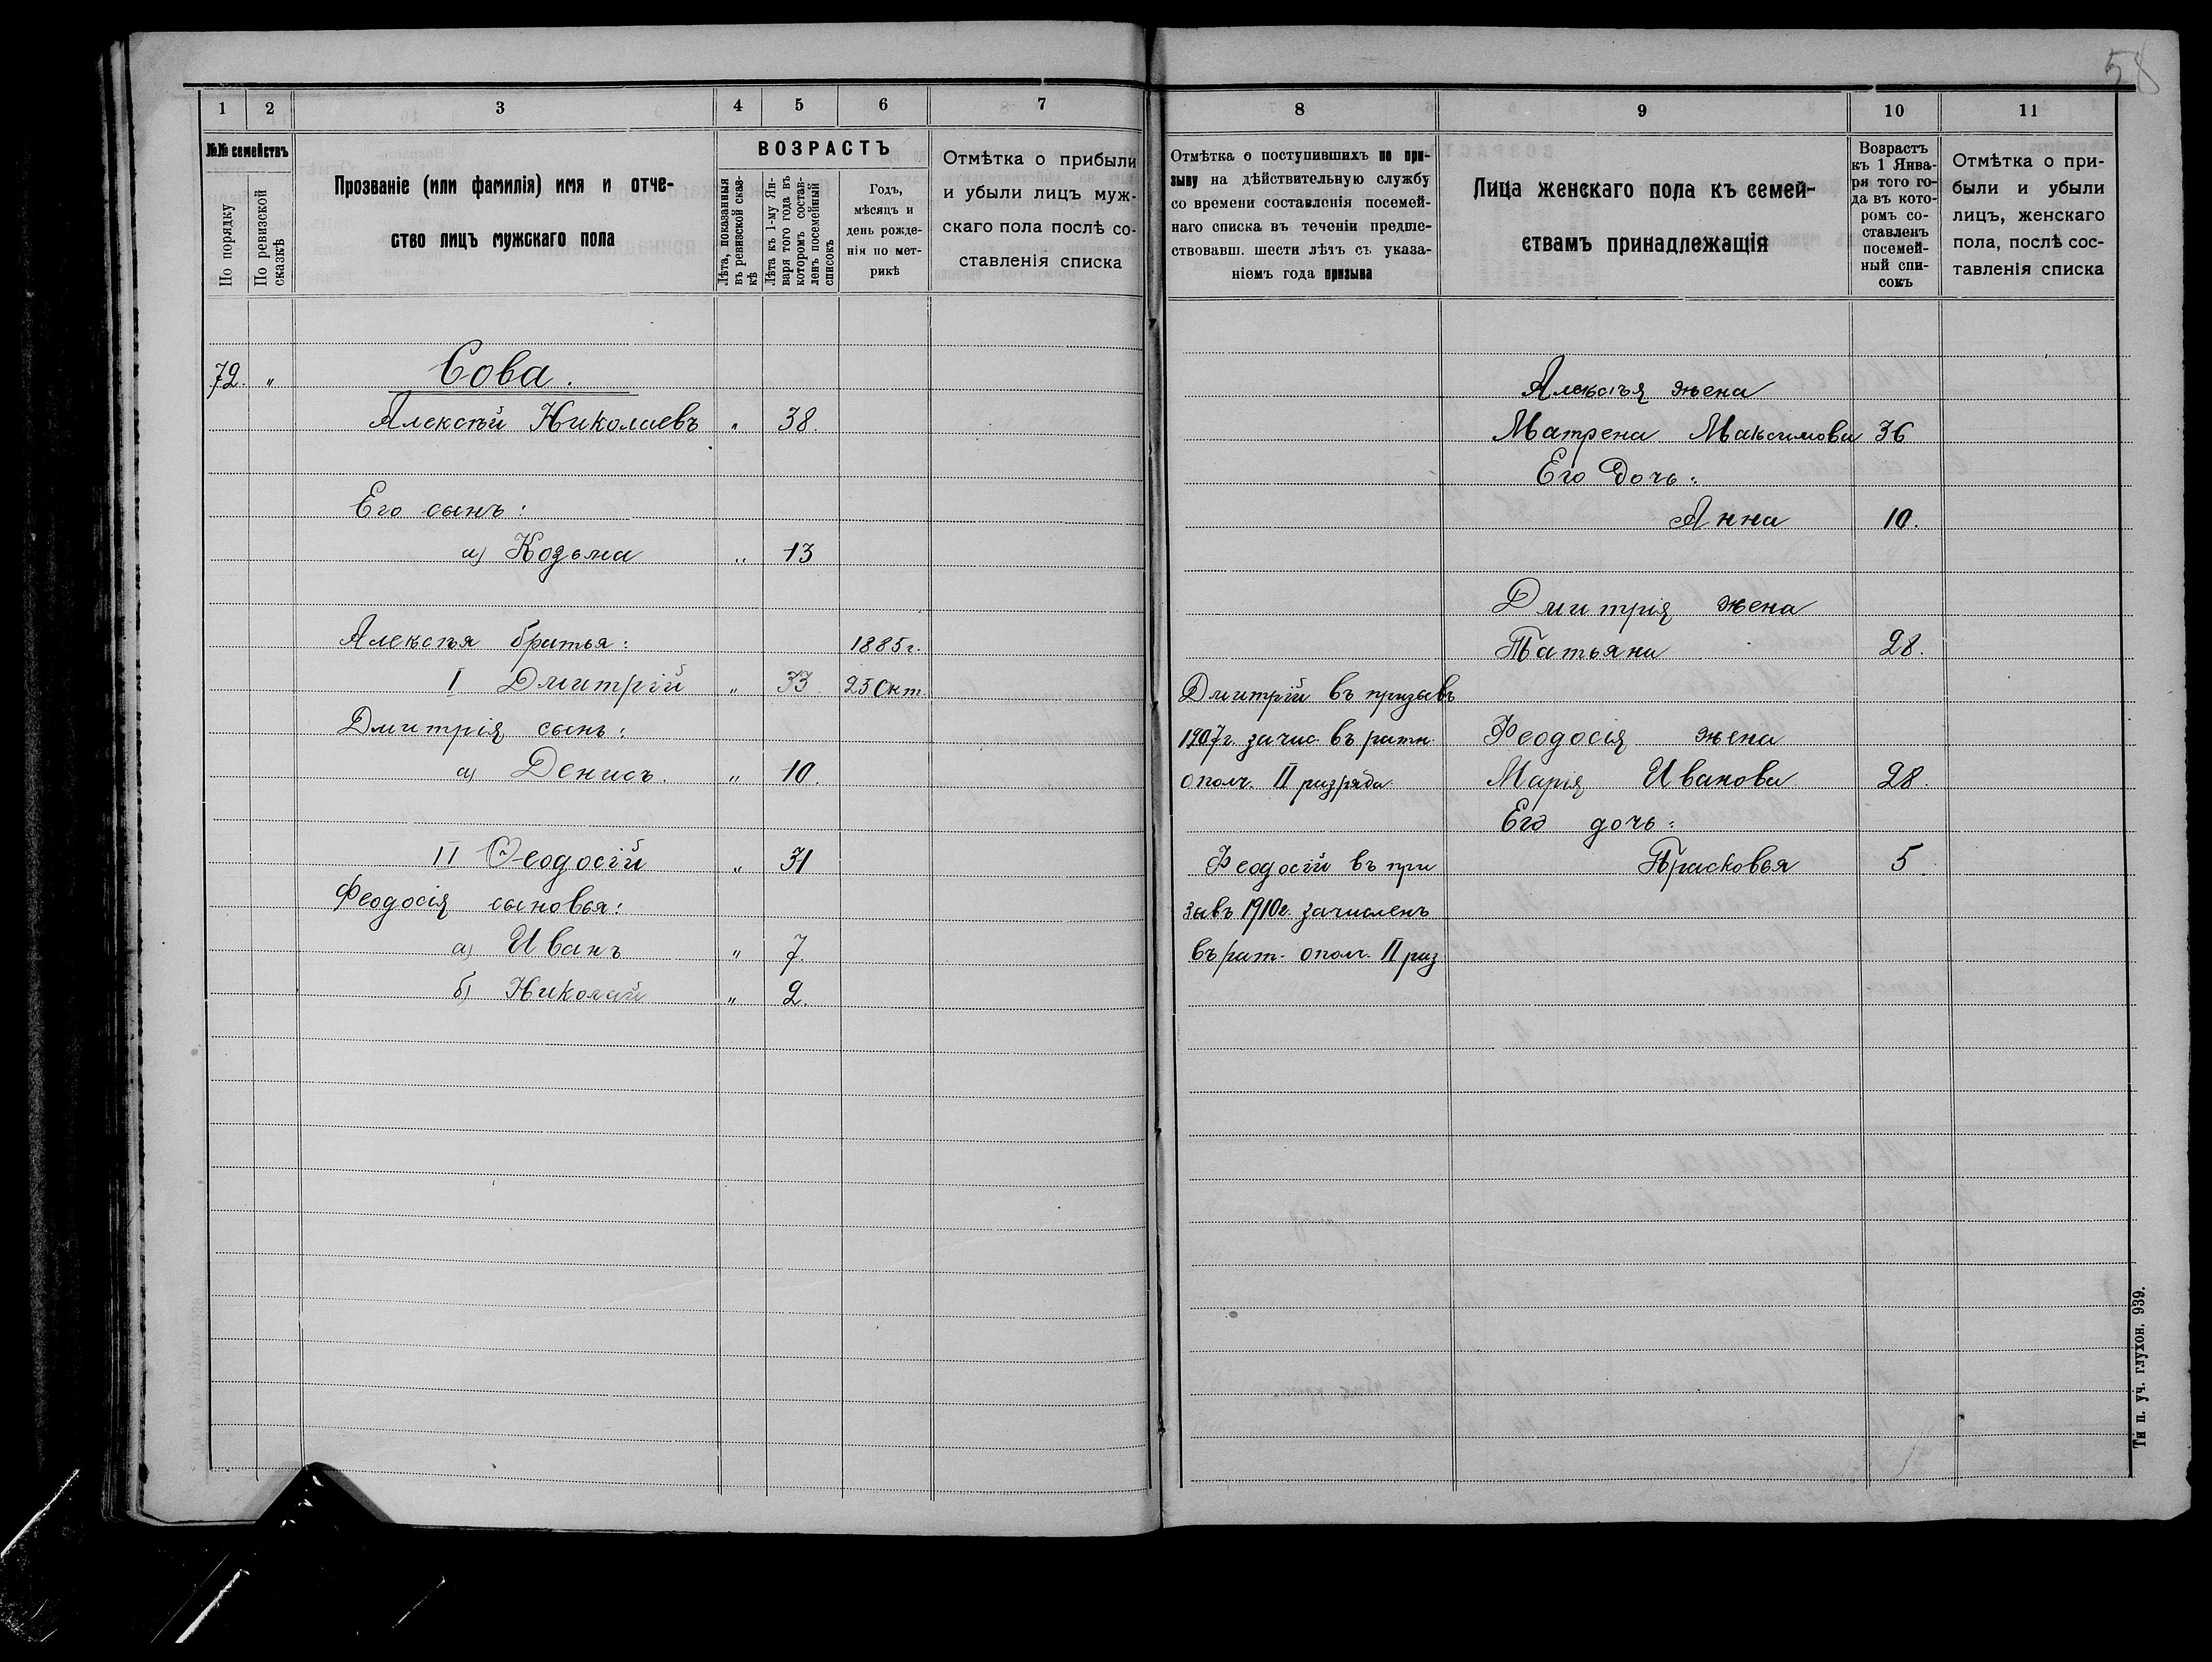 58
1 2 3 4 5 6 7
№№ семействъ
По порядку
По ревизской сказкѣ
Прозваніе (или фамилія) имя и отче-
ство лицъ мужскаго пола
ВОЗРАСТЪ
Лѣта, показанныя
въ ревизской сказ-
кѣ
Лѣта къ 1-му Ян-
варя того года въ
которомъ состав-
ленъ посемейный
списокъ
Годъ,
мѣсяцъ и
день рожде-
нія по мет-
рикѣ
Отмѣтка о прибыли
и убыли лицъ муж-
скаго пола послѣ со-
ставленія списка
72. " Сова.
Алексѣй Николаевъ " 38.
Его сынъ:
а) Козьма " 13
Алексѣя братья: 1885 г.
I Дмитрій " 33. 25 Окт.
Дмитрія сынъ:
а) Денисъ. " 10.
II Ѳеодосій " 31
Феодосія сыновья:
а) Иванъ " 7.
б) Николай " 2.
8 9 10 11
Отмѣтка о поступившихъ по при-
зыву на дѣйствительную службу
со времени составленія посемей-
наго списка въ теченіи предше-
ствовавш. шести лѣтъ съ указа-
ніемъ года призыва
Лица женскаго пола къ семей-
ствамъ принадлежащія
Возрастъ
къ 1 Янва-
ря того го-
да въ кото-
ромъ со-
ставленъ
посемей-
ный спи-
сокъ
Отмѣтка о при-
были и убыли
лицъ, женскаго
пола, послѣ сос-
тавленія списка
Алексѣя жена
Матрена Максимова 36
Его дочь:
Анна 10.
Дмитрія жена
Татьяна 28.
Дмитрій въ призывъ
1907 г. зачис. въ ратн. Феодосія жена
ополч. II разряда Марія Иванова 28.
Его дочь:
Феодосій въ при Прасковья 5.
зывъ 1910 г. зачисленъ
въ рат. ополч. II раз
Тип. уч. глухон. 939.